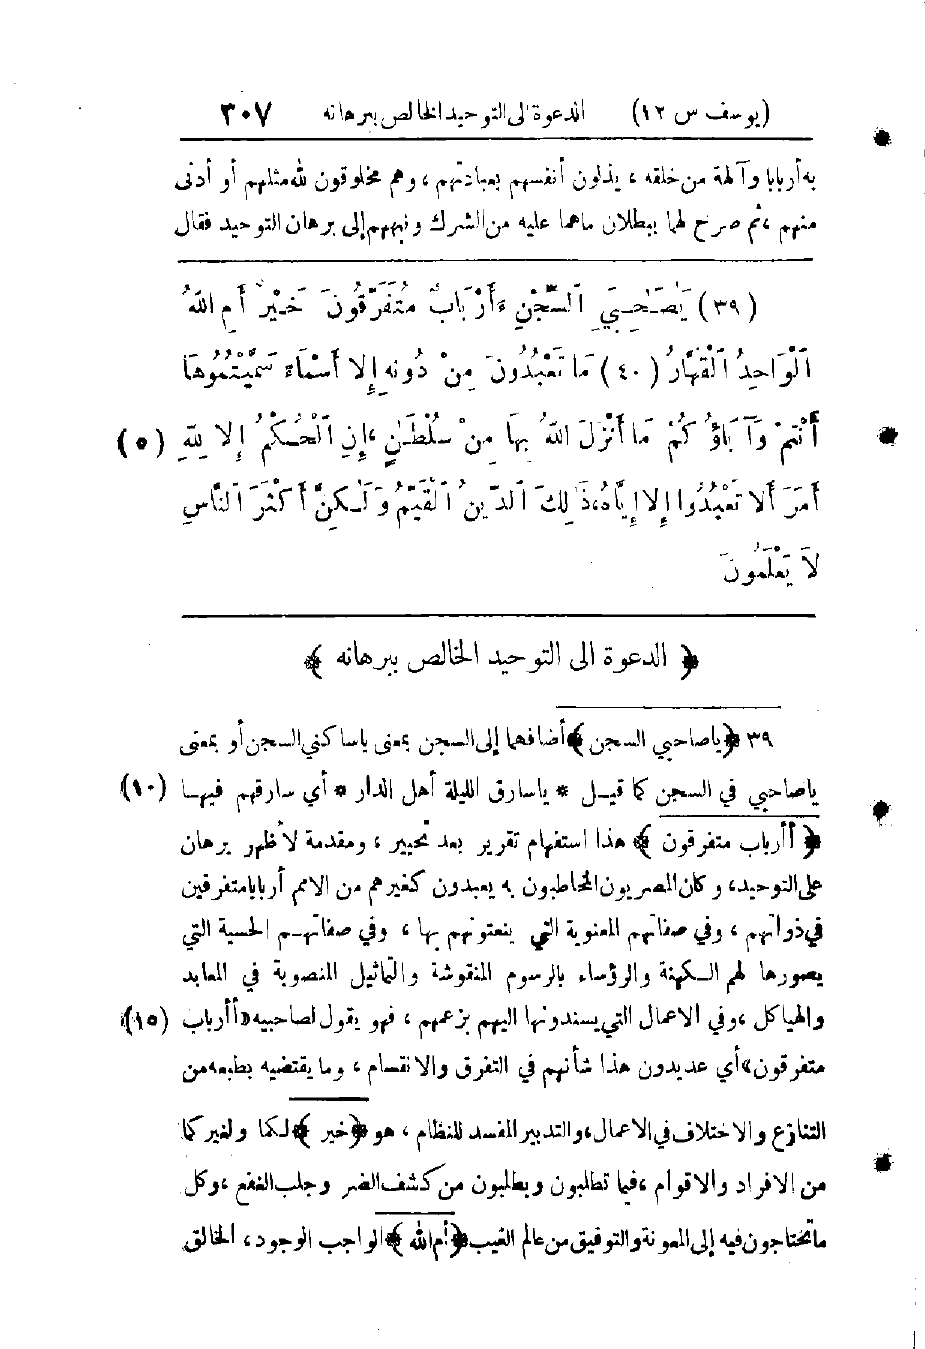 (يوسف س ١٢) الدعوة الى التوحيد الخالص ببرهانه ٣٠٧
به أربابا وآلهة من خلقه ، يذلون أنفسهم بعبادتهم ، وهم مخلوقون لله مثلهم أو أدنى
منهم ، ثم صرح لهما ببطلان ماهما عليه من الشرك ونبههم إلى برهان التوحيد فقال
(٣٩) يَٰصَٰحِبَيِ ٱلسِّجْنِ ءَأَرْبَابٌ مُتَفَرِّقُونَ خَيْرٌ أَمِ اللهُ
ٱلْوَاحِدُ ٱلْقَهَّارُ (٤٠) مَا تَعْبُدُونَ مِنْ دُونِهِ إِلا أَسْمَاءً سَمَّيْتُمُوهَا
أَنْتُمْ وَآبَاؤُكُمْ مَا أَنْزَلَ اللهُ بِهَا مِنْ سُلْطَٰنٍ ، إِنِ ٱلْحُكْمُ إِلا لِلهِ (٥)
أَمَرَ أَلا تَعْبُدُوا إِلا إِيَّاهُ، ذَٰلِكَ ٱلدِّينُ ٱلْقَيِّمُ وَلَٰكِنَّ أَكْثَرَ ٱلنَّاسِ
لَا يَعْلَمُونَ
﴿ الدعوة الى التوحيد الخالص ببرهانه ﴾
٣٩ ﴿ ياصاحبي السجن ﴾ أضافهما إلى السجن بمعنى ياساكني السجن أو بمعنى
ياصاحبي في السجن كما قيل * ياسارق الليلة أهل الدار * أي سارقهم فيها (١٠)
﴿ أأرباب متفرقون ﴾ هذا استفهام تقرير بعد تخيير ، ومقدمة لأظهر برهان
على التوحيد، وكان المصريون المخاطبون به يعبدون كغيرهم من الامم أربابا متفرقين
في ذواتهم ، وفي صفاتهم المعنوية التي ينعتونهم بها ، وفي صفاتهم الحسية التي
يصورها لهم الكهنة والرؤساء بالرسوم المنقوشة والتماثيل المنصوبة في المعابد
والهياكل ، وفي الاعمال التي يسندونها اليهم بزعمهم ، فهو يقول لصاحبيه «أأرباب (١٥)
متفرقون» أي عديدون هذا شأنهم في التفرق والانقسام ، وما يقتضيه بطبعه من
التنازع والاختلاف في الاعمال، والتدبير المفسد للنظام ، هو ﴿ خير ﴾ لكما ولغيركما
من الافراد والاقوام ، فيما تطلبون ويطلبون من كشف الضر وجلب النفع ، وكل
ماتحتاجون فيه إلى المعونة والتوفيق من عالم الغيب ﴿ أم الله ﴾ الواجب الوجود ، الخالق